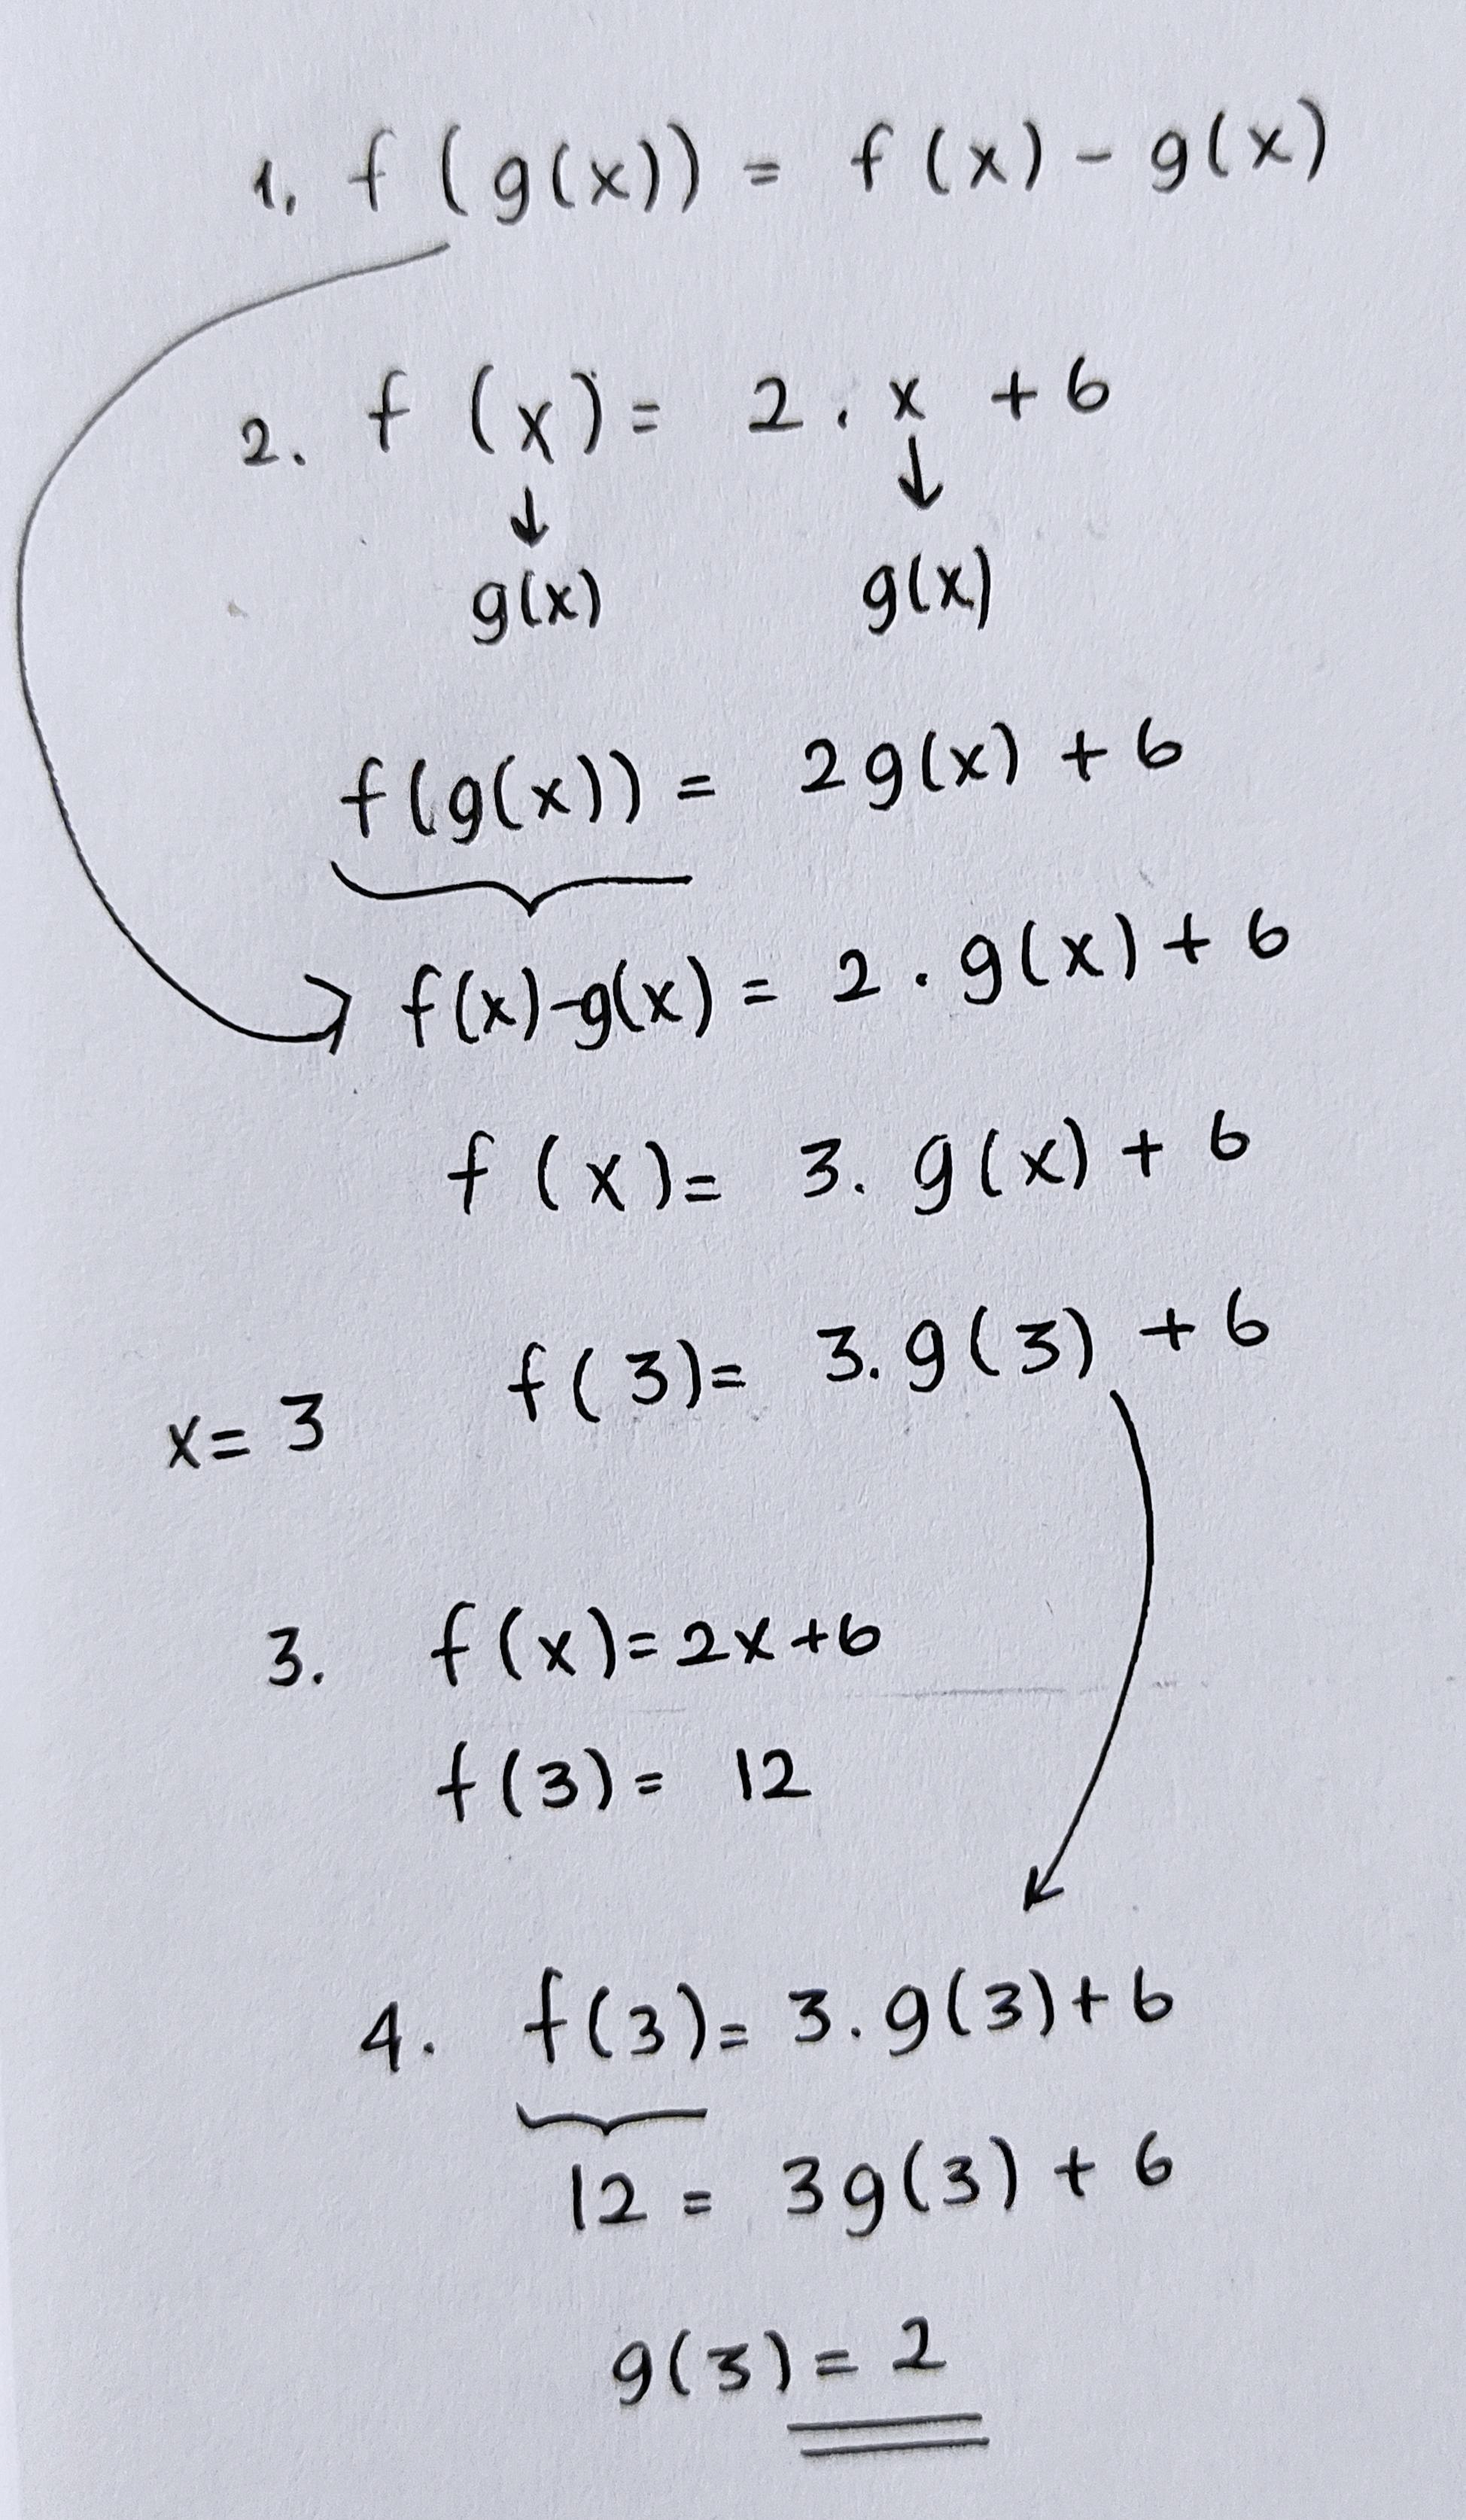 1. f(g(x)) = f(x) - g(x)
2. f(x) = 2 . x + 6
↓ ↓
g(x) g(x)
f(g(x)) = 2g(x) + 6
f(x)-g(x) = 2 . g(x) + 6
f(x) = 3. g(x) + 6
x = 3 f(3) = 3. g(3) + 6
3. f(x) = 2x + 6
f(3) = 12
4. f(3) = 3. g(3) + 6
12 = 3g(3) + 6
g(3) = 2